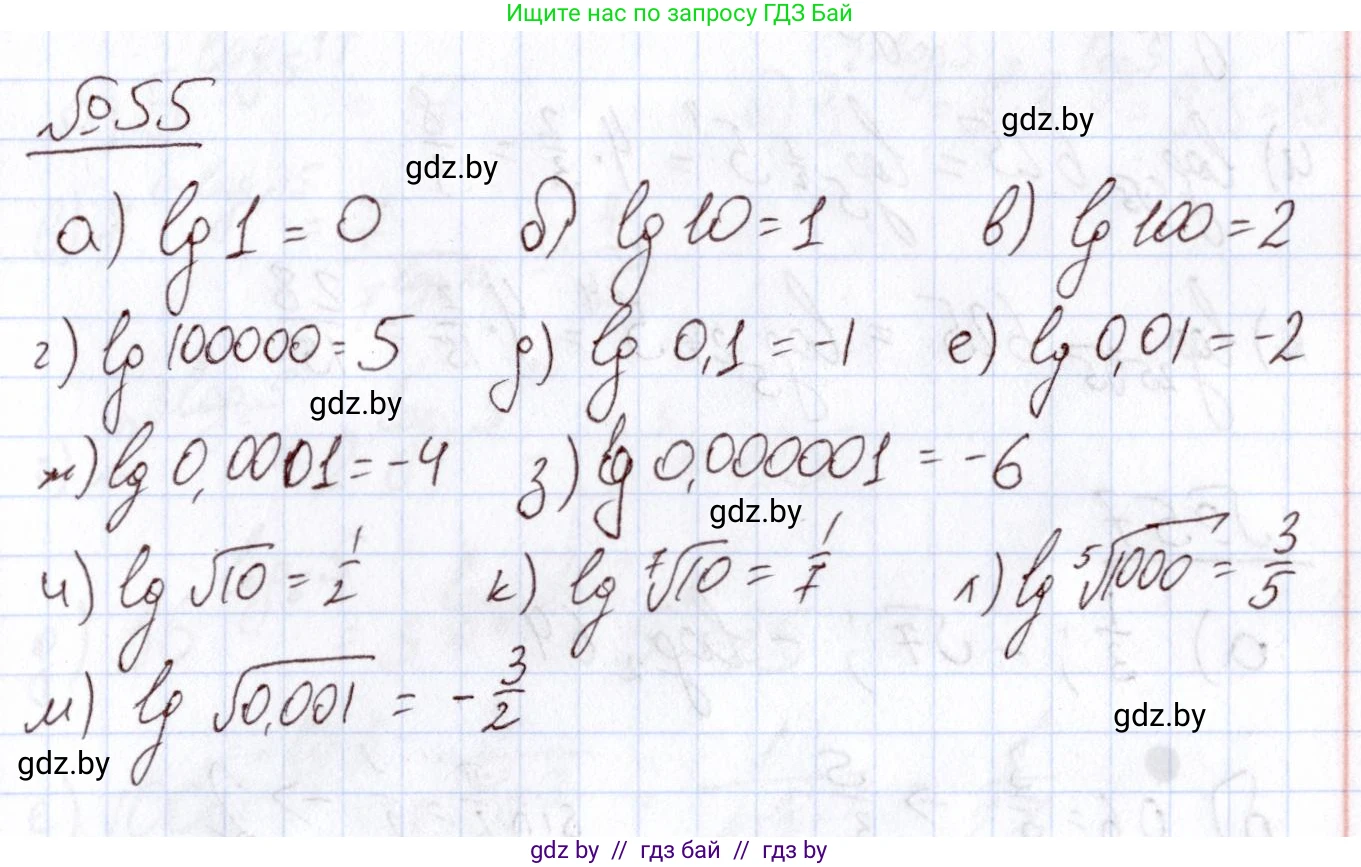 Ищите нас по запросу ГДЗ Бай
№55
gdz.by
gdz.by
а) lg 1 = 0 б) lg 10 = 1 в) lg 100 = 2
г) lg 100000 = 5 д) lg 0,1 = -1 е) lg 0,01 = -2
gdz.by
ж) lg 0,0001 = -4 з) lg 0,000001 = -6
gdz.by
и) lg √10 = 1/2 к) lg ⁷√10 = 1/7 л) lg ⁵√1000 = 3/5
м) lg √0,001 = - 3/2
gdz.by
gdz.by
gdz by // гдз бай // гдз by